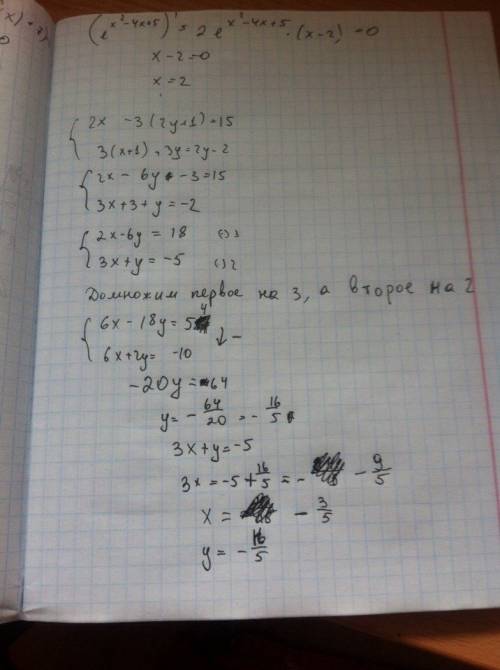 (e^{x²-4x+5})' = 2e^{x²-4x+5}·(x-2) = 0
x-2=0
x=2
{ 2x -3(2y+1)=15
3(x+1)+3y=2y-2
{ 2x-6y-3=15
3x+3+y=-2
{ 2x-6y=18 (·)3
3x+y=-5 (·)2
Домножим первое на 3, а второе на 2
{ 6x-18y=54 ↓ -
6x+2y=-10
-20y=64
y=-64/20=-16/5
3x+y=-5
3x=-5+16/5=- -9/5
x= -3/5
y=-16/5